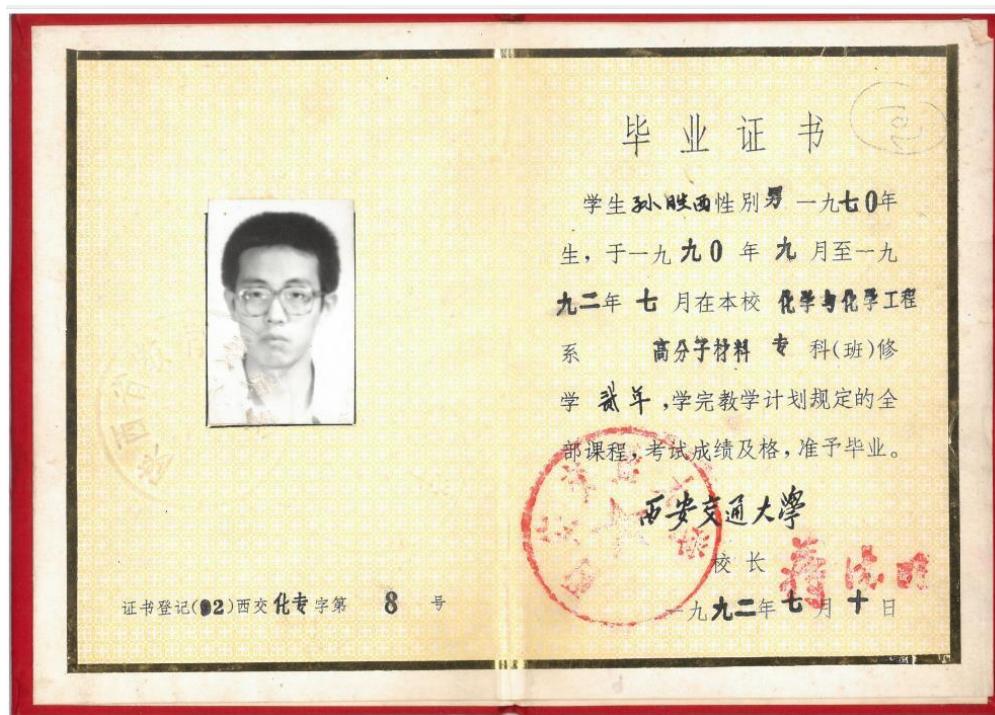 毕业证书
学生孙胜西性别男一九七0年
生，于一九九0年九月至一九
九二年七月在本校化学与化学工程
系 高分子材料 专科(班)修
学贰年，学完教学计划规定的全
部课程，考试成绩及格，准予毕业。
西安交通大學
校长
一九九二年七月十日
证书登记(92)西交化专字第 8 号